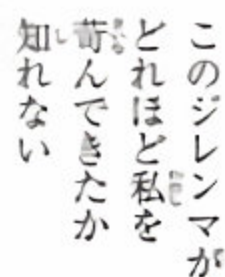 このジレンマが
どれほど私を
苛んできたか
知れない